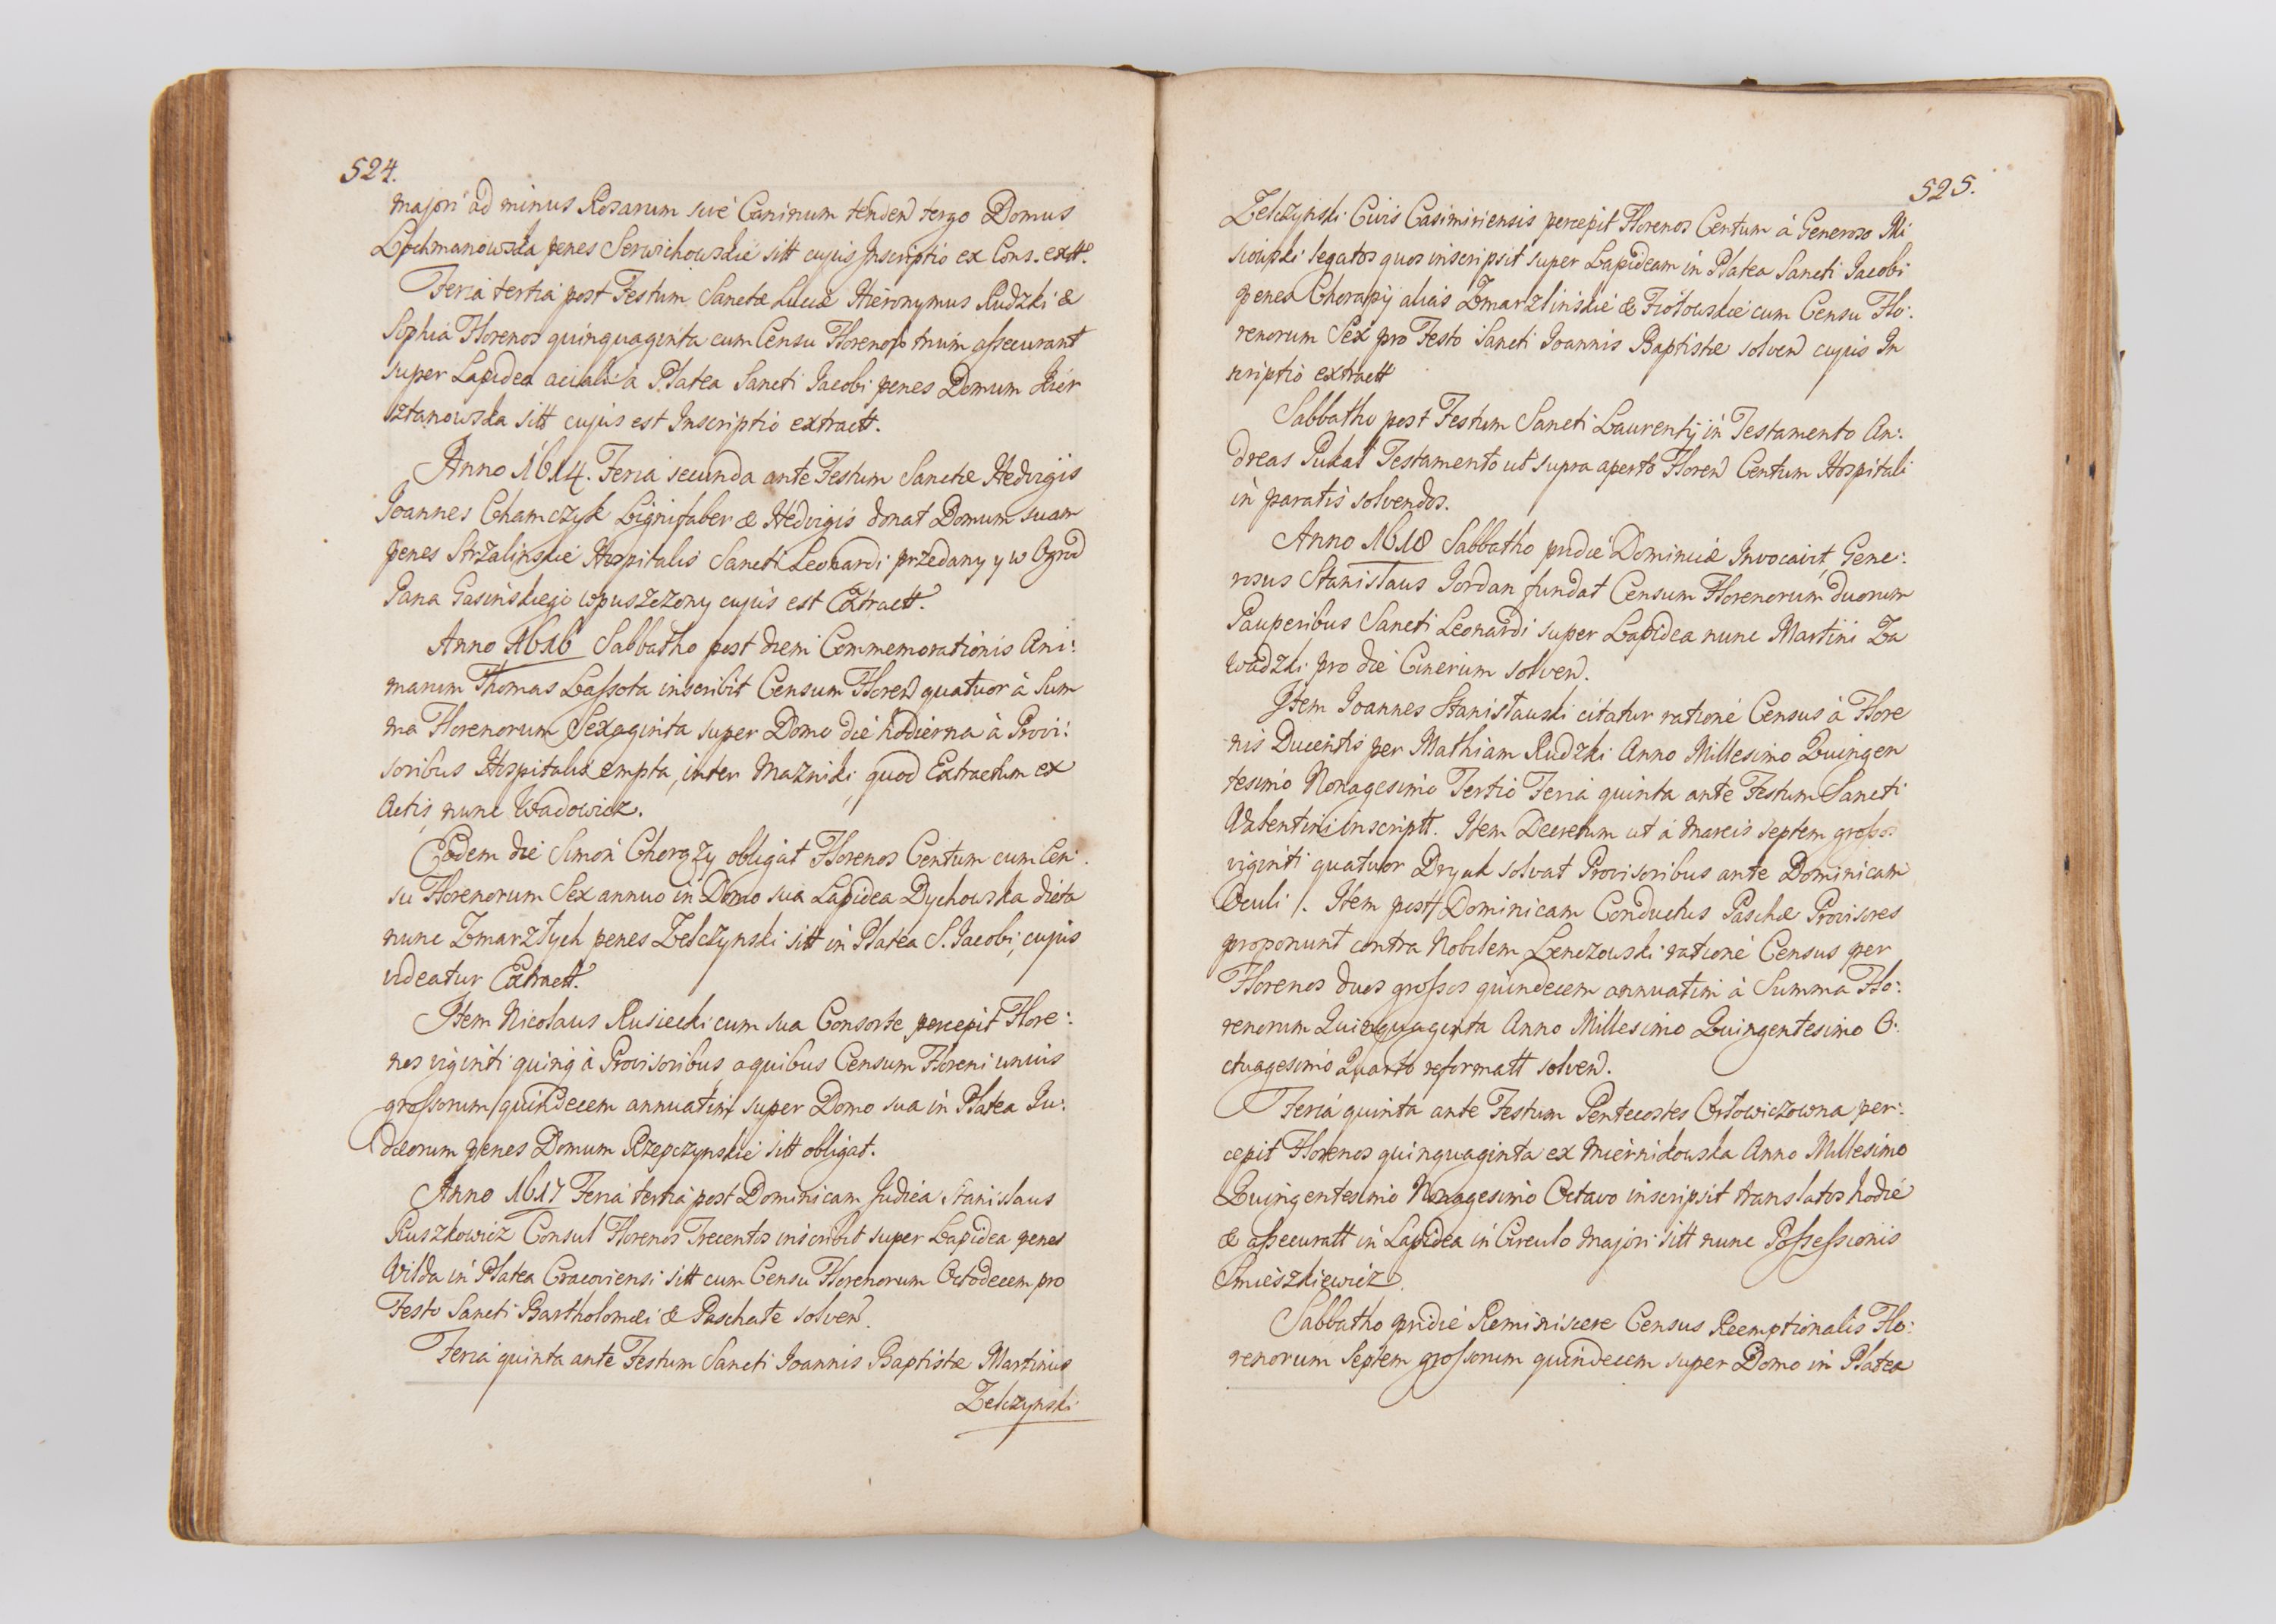 524.
majori ad minus Rosarum sive Caninum tenden tergo Domus
Lochmanowska penes Serwichowskie sitt cujus Inscriptio ex Cons. extt.
Feria tertia post Festum Sanctæ Luciæ Hieronymus Rudzki &
Sophia Florenos quinquaginta cum Censu Florenor trium assecurant
super Lapidea aciali à Platea Sancti Jacobi penes Domum Kier
sztanowska sitt cujus est Inscriptio extractt.
Anno 1614. Feria secunda ante Festum Sanctæ Hedvigis
Joannes Chamczyk Lignifaber & Hedvigis donat Domum suam
penes Strzalinskie Hospitalis Sancti Leonardi przedany y w Ogrod
Pana Gasinskiego wpuszczony cujus est Extractt.
Anno 1616 Sabbatho post diem Commemorationis Ani:
marum Thomas Lassota inscribit Censum Floren quatuor à Sum
ma Florenorum Sexaginta super Domo die hodierna à Provi:
soribus Hospitalis empta, inter Mazniki, quod Extractum ex
Actis nunc Wadowicz.
Eodem die Simon Chorązy obligat Florenos Centum cum Cen:
su Florenorum Sex annuo in Domo sua Lapidea Dychowska dicta
nunc Zmarzłych penes Zelczynski sitt in Platea S. Jacobi, cujus
videatur Extractt.
Item Nicolaus Rusiecki cum sua Consorte percepit Flore:
nos viginti quinq à Provisoribus aquibus Censum Floreni unius
grossorum quindecem annuatim super Domo sua in Platea Ju:
dæorum penes Domum Rzepczynskie sitt obligat.
Anno 1617 Feria tertia post Dominicam Judica Stanislaus
Ruszkowicz Consul Florenos Trecentos inscribit super Lapidea penes
Wilda in Platea Cracoviensi sitt cum Censu Florenorum Octodecem pro
Festo Sancti Bartholomæi & Paschate solven.
Feria quinta ante Festum Sancti Joannis Baptistæ Martinus
Zelczynski
525.
Zelczynski Civis Casimiriensis percepit Florenos Centum à Generoso Mi
sciowski legatos quos inscripsit super Lapideam in Platea Sancti Jacobi
penes Chorązy alias Zmarzlinskie & Fiołowskie cum Censu Flo:
renorum Sex pro Festo Sancti Joannis Baptistæ solven cujus In
scriptio extractt
Sabbatho post Festum Sancti Laurentij in Testamento An:
dreas Pukał Testamento ut supra aperto Floren Centum Hospitali
in paratis solvendos.
Anno 1618 Sabbatho pridie Dominicæ Invocavit, Gene:
rosus Stanisłaus Jordan fundat Censum Florenorum duorum
Pauperibus Sancti Leonardi super Lapidea nunc Martini Za
wadzki pro die Cinerum solven.
Item Joannes Stanisławski citatur ratione Census à Flore
nis Ducentis per Mathiam Rudzki Anno Millesimo Quingen
tesimo Nonagesimo Tertio Feria quinta ante Festum Sancti
Valentini inscriptt. Item Decretum ut à marcis septem grossos
viginti quatuor Dryak solvat Provisoribus ante Dominicam
Oculi /. Item post Dominicam Conductus Paschæ Provisores
proponunt contra Nobilem Lenczowski ratione Census per
Florenos duos grossos quindecem annuatim à Summa Flo:
renorum Quinquaginta Anno Millesimo Quingentesimo O:
ctuagesimo Quarto reformatt solven.
Feria quinta ante Festum Pentecostes Orłowiczowna per:
cepit Florenos quinquaginta ex Miernikowska Anno Millesimo
Quingentesimo Nonagesimo Octavo inscripsit translatos hodie
& assecuratt in Lapidea in Circulo Majori sitt nunc Possessionis
Smieszkiewicz.
Sabbatho pridie Reminiscere Census Reemptionalis Flo:
renorum Septem grossorum quindecem super Domo in Platea